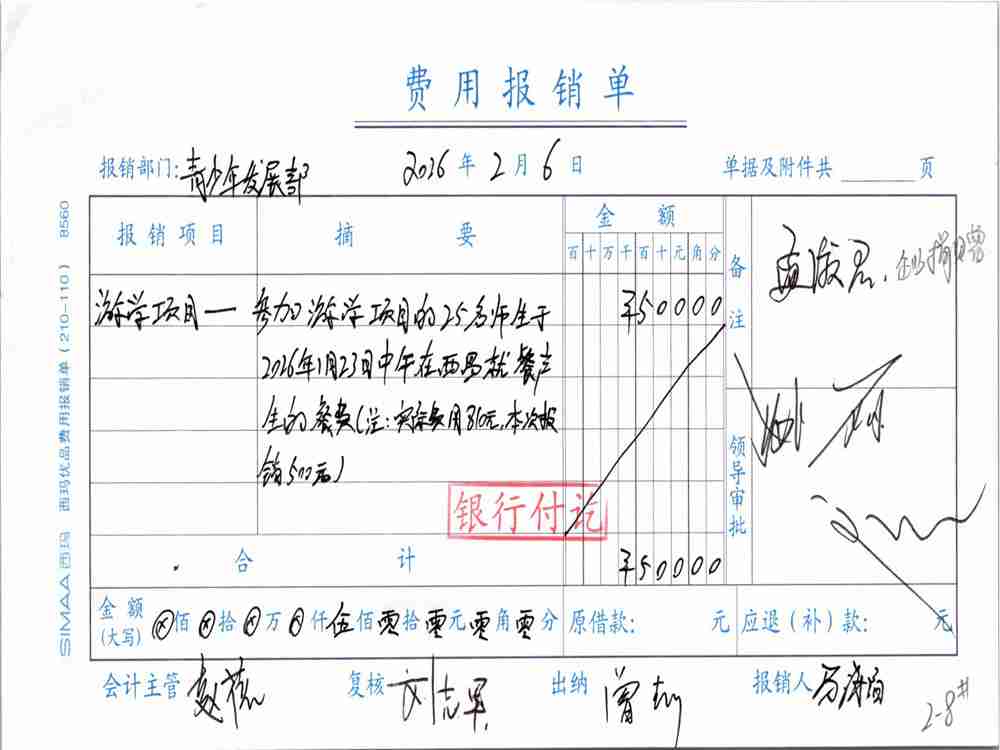 费用报销单
报销部门: 青少年发展部 2026 年 2 月 6 日 单据及附件共 页
报销项目 摘要 金额 备注
百 十 万 千 百 十 元 角 分
游学项目— 参加游学项目的25名师生于 ¥50000
2026年1月23日中午在西昌就餐产
生的餐费(注:实际费用810元,本次报
销500元)
领导审批
银行付讫
合计 ¥50000
金额(大写) ⊗佰⊗拾⊗万⊗仟伍佰零拾零元零角零分 原借款: 元 应退(补)款: 元
会计主管 复核 刘志军 出纳 报销人
2-8#
SIMAA西玛 西玛优品费用报销单(210-110) 8560